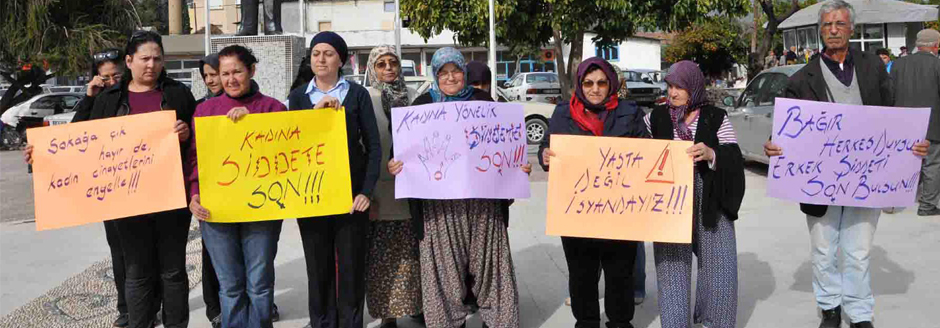 Sokağa çık
hayır de,
kadın cinayetlerini
engelle!!!
KADINA
ŞİDDETE
SON!!!
KADINA YÖNELİK
ŞİDDETE
SON!!!
YASTA
DEĞİL
İSYANDAYIZ!!!
BAĞIR
HERKES DUYSUN
ERKEK ŞİDDETİ
SON BULSUN!!!